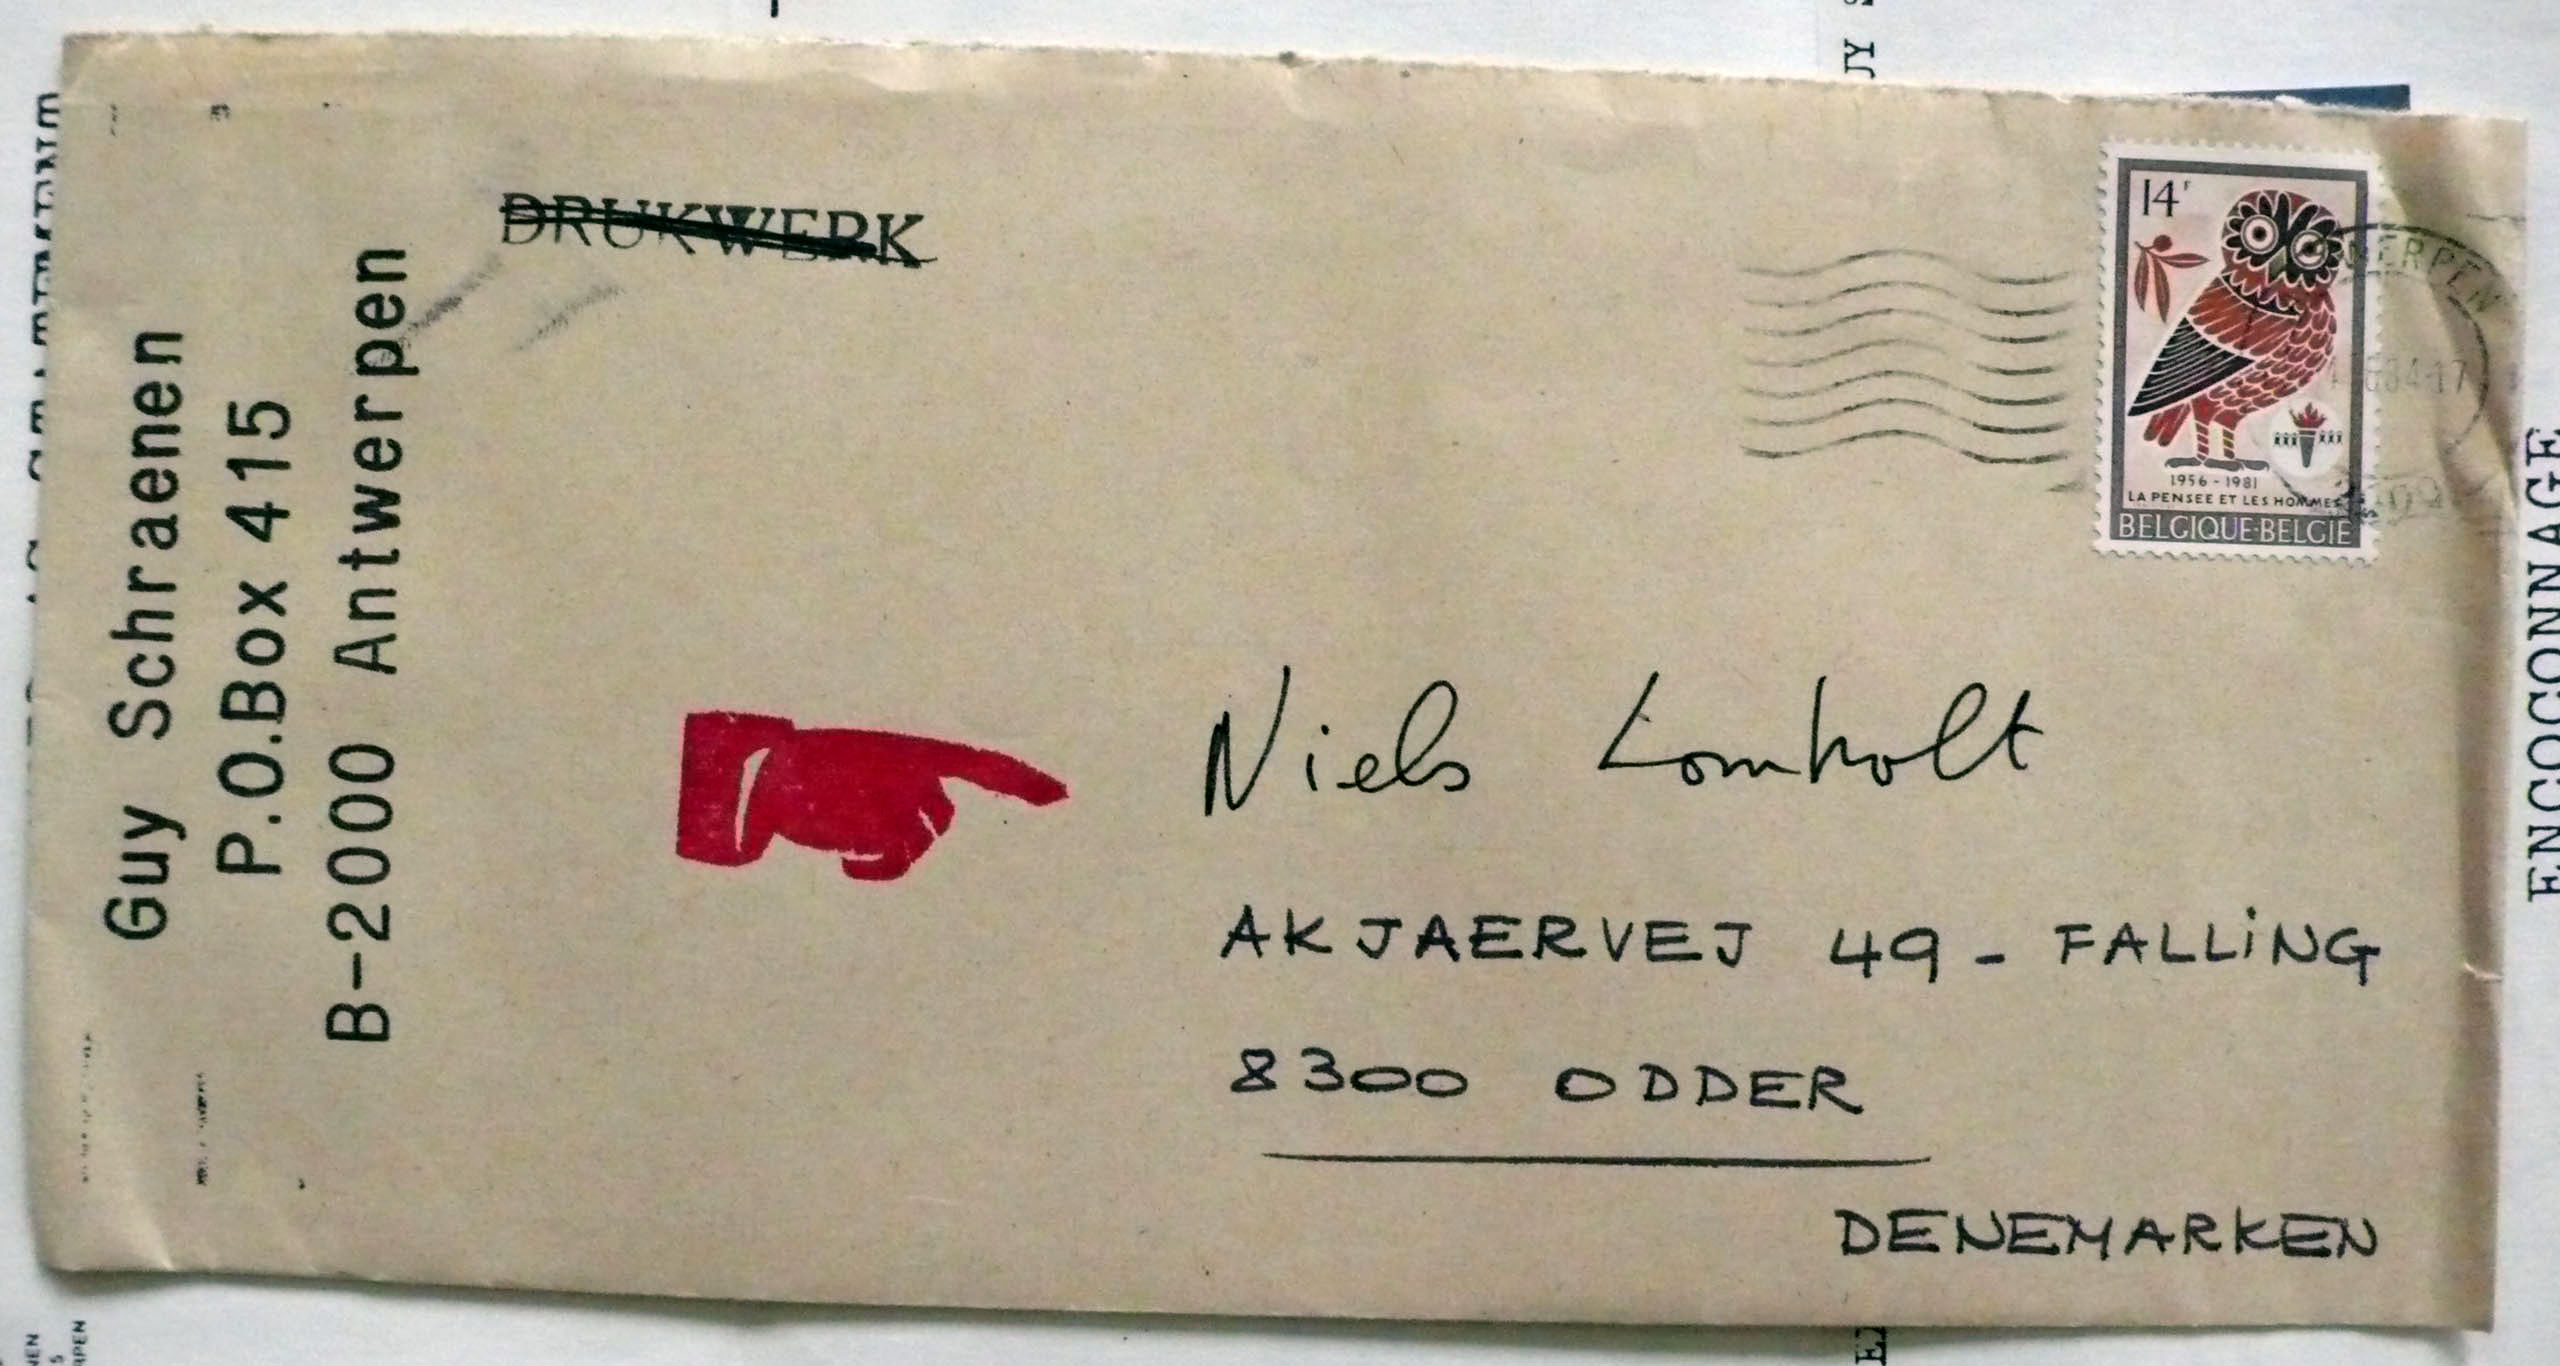 Guy Schraenen
P.O.Box 415
B-2000 Antwerpen
DRUKWERK
14F
1956 - 1981
LA PENSEE ET LES HOMMES
BELGIQUE·BELGIE
Niels Lomholt
AKJAERVEJ 49 - FALLiNG
8300 ODDER
DENEMARKEN
ENCOCONNAGE